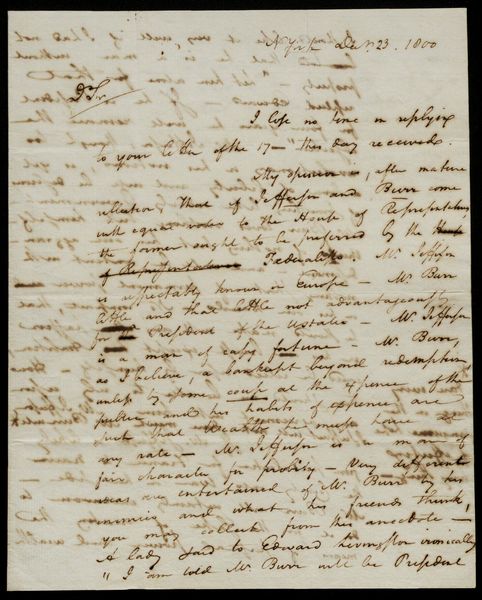 N York Decr. 23. 1800
Dr Sir,
I lose no time in replying
to your letter of the 17— this day received.
My opinion is, after mature
reflection, that if Jefferson and Burr come
with equal votes to the House of Representatives,
the former ought to be preferred by the House
of Representatives Federalists — Mr. Jefferson
is respectably known in Europe — Mr Burr
little and that little not advantageously
for President of the UStates — Mr. Jefferson
is a man of easy fortune — Mr. Burr,
as I believe, a bankrupt beyond redemption,
unless by some coup at the expence of the
public and his habits of expence are
such that Wealth he must have at
any rate — Mr. Jefferson is a man of
fair character for probity — Very different
ideas are entertained of Mr. Burr by his
enemies and what his friends think,
you may collect from this anecdote —
A lady said to Edward Livingston ironically
"I am told Mr Burr will be President